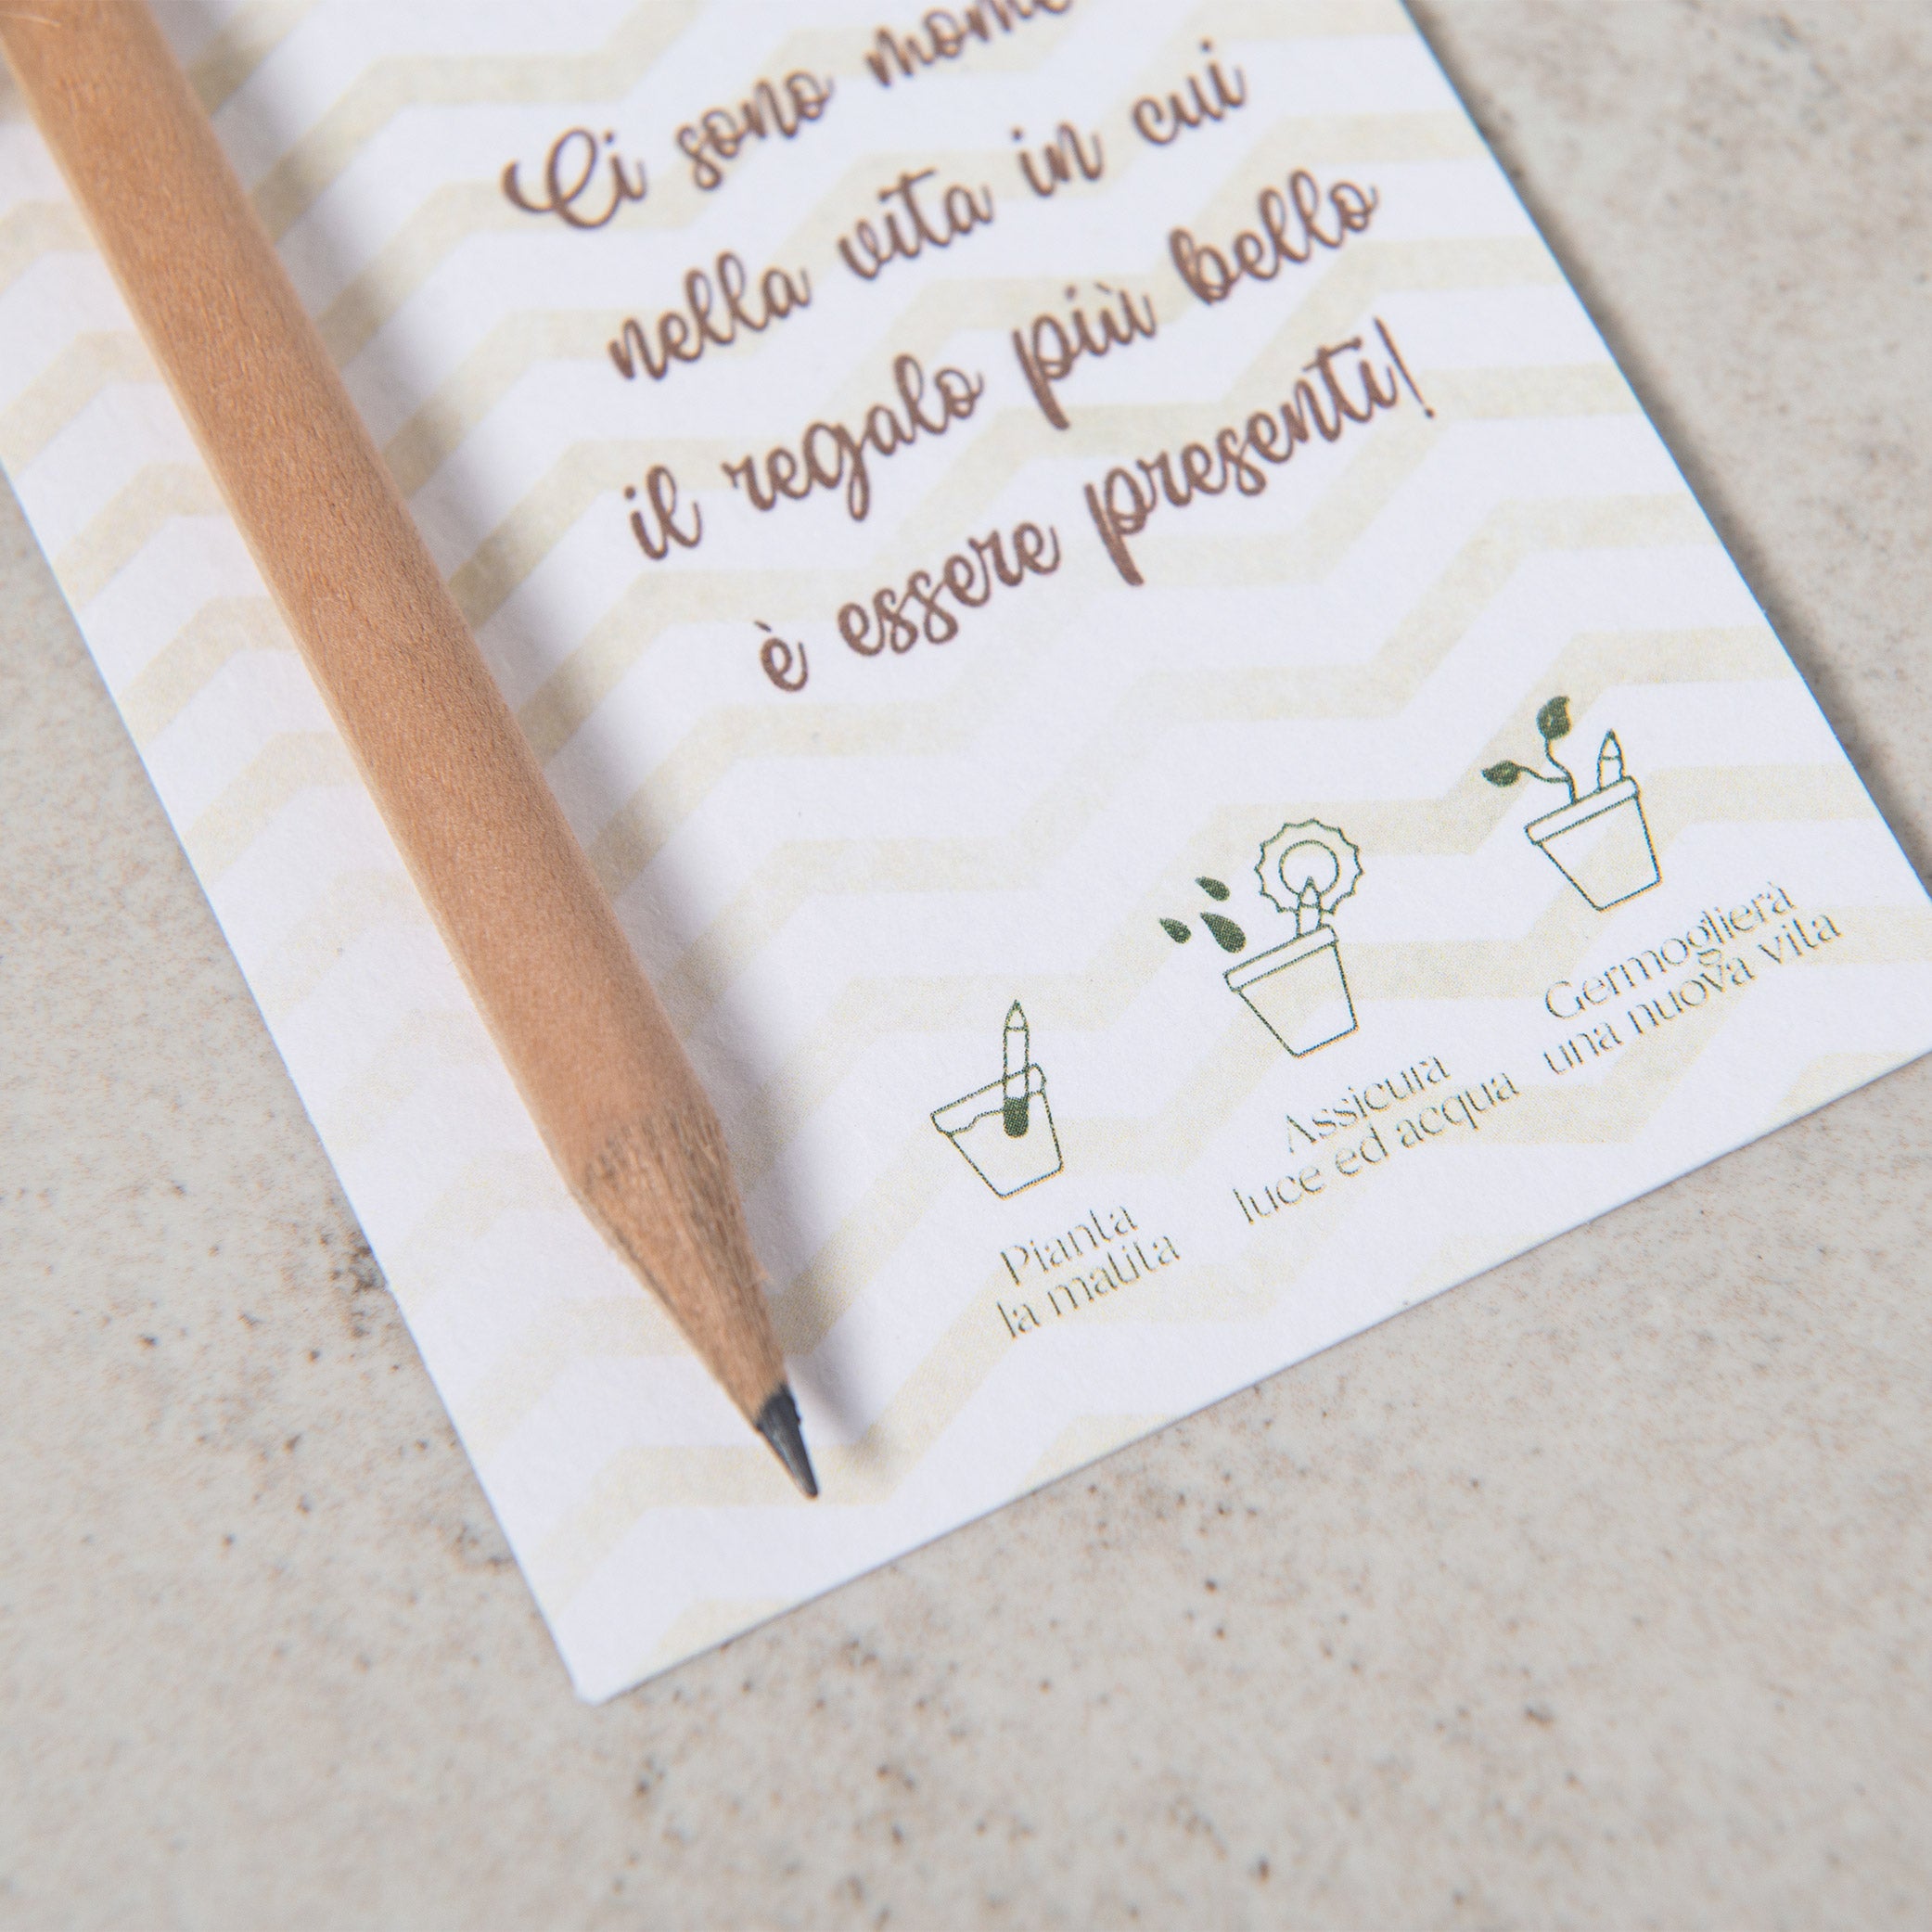 Ci sono mome
nella vita in cui
il regalo più bello
è essere presenti!
Pianta
la matita
Assicura
luce ed acqua
Germoglierà
una nuova vita